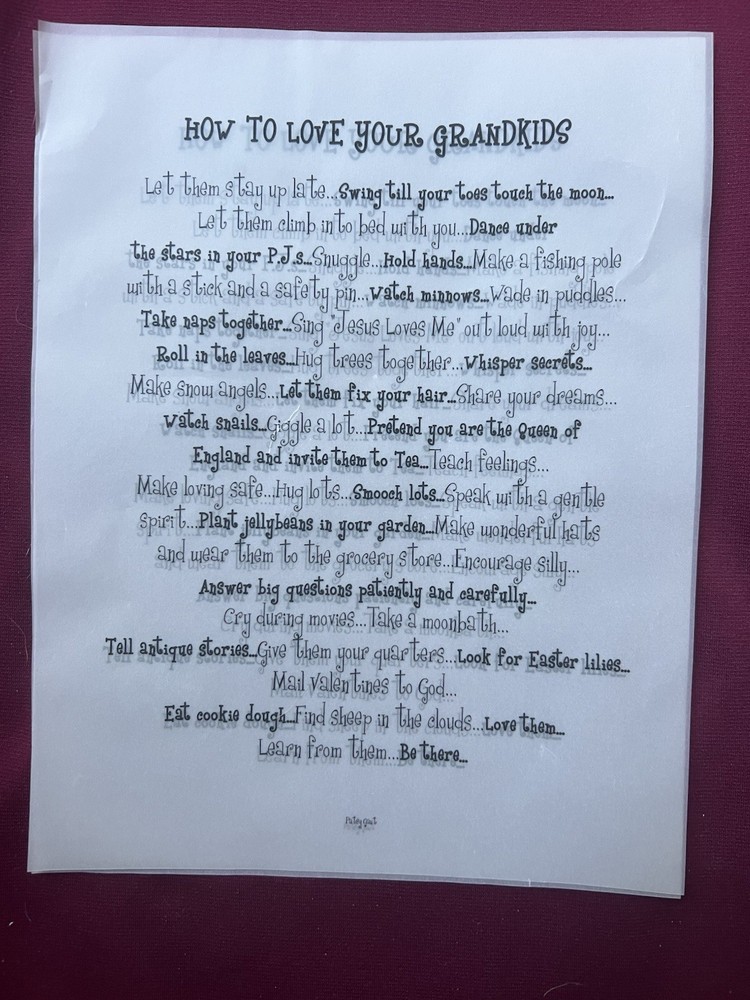 HOW TO LOVE YOUR GRANDKIDS
Let them stay up late...Swing till your toes touch the moon...
Let them climb into bed with you...Dance under
the stars in your P.J.s...Snuggle...Hold hands...Make a fishing pole
with a stick and a safety pin...Watch minnows...Wade in puddles...
Take naps together...Sing "Jesus Loves Me" out loud with joy...
Roll in the leaves...Hug trees together...Whisper secrets...
Make snow angels...Let them fix your hair...Share your dreams...
Watch snails...Giggle a lot...Pretend you are the Queen of
England and invite them to Tea...Teach feelings...
Make loving safe...Hug lots...Smooch lots...Speak with a gentle
spirit...Plant jellybeans in your garden...Make wonderful hats
and wear them to the grocery store...Encourage silly...
Answer big questions patiently and carefully...
Cry during movies...Take a moonbath...
Tell antique stories...Give them your quarters...Look for Easter lilies...
Mail Valentines to God...
Eat cookie dough...Find sheep in the clouds...Love them...
Learn from them...Be there...